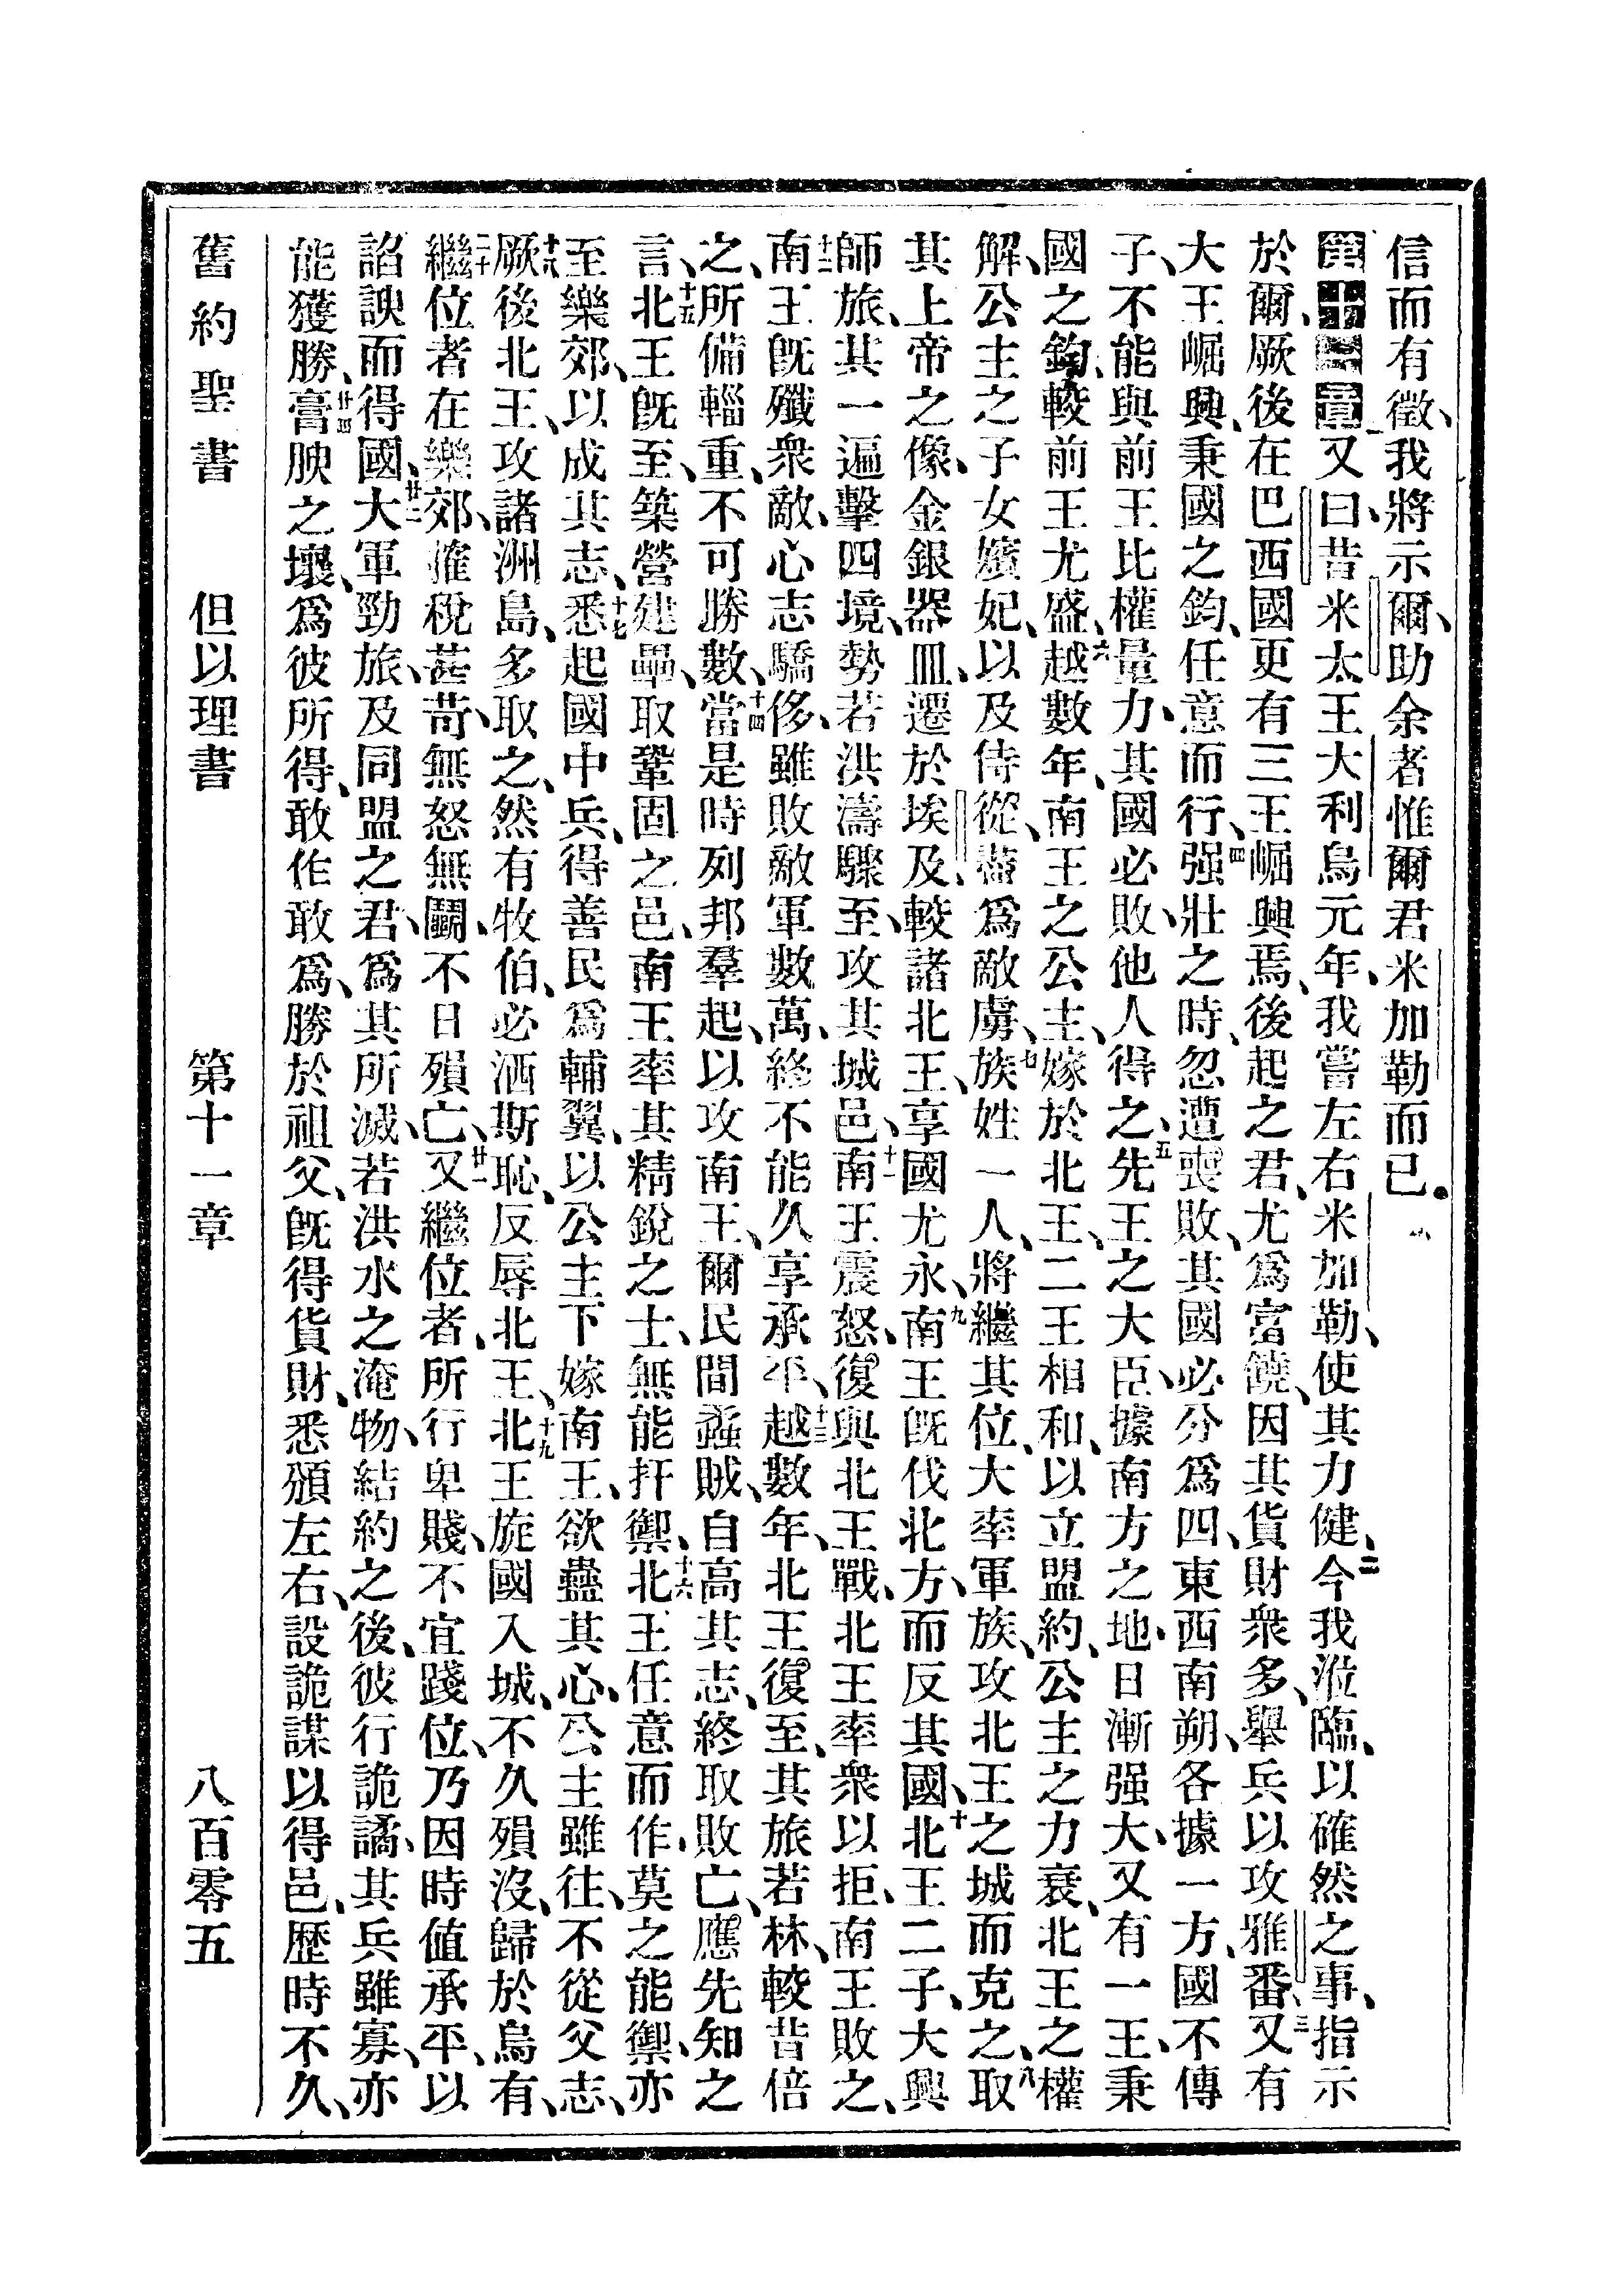 信而有徵、我將示爾、助余者惟爾君米加勒而已。
第十一章一又曰、昔米太王大利烏元年、我嘗左右米加勒、使其力健、二今我涖臨、以確然之事、指示
於爾、厥後在巴西國更有三王崛興焉、後起之君、尤爲富饒、因其貨財衆多、舉兵以攻雅番、三又有
大王崛興、秉國之鈞、任意而行、四强壯之時、忽遭喪敗、其國必分爲四、東西南朔、各據一方、國不傳
子、不能與前王比權量力、其國必敗、他人得之、五先王之大臣、據南方之地、日漸强大、又有一王、秉
國之鈞、較前王尤盛、六越數年、南王之公主、嫁於北王、二王相和、以立盟約、公主之力衰、北王之權
解、公主之子女嬪妃、以及侍從、藎爲敵虜、七族姓一人、將繼其位、大率軍族、攻北王之城而克之、八取
其上帝之像、金銀器皿、遷於埃及、較諸北王、享國尤永、九南王旣伐北方、而反其國、十北王二子、大興
師旅、其一遍擊四境、勢若洪濤驟至、攻其城邑、十一南王震怒、復與北王戰、北王率衆以拒、南王敗之、
十二南王旣殲衆敵、心志驕侈、雖敗敵軍數萬、終不能久享承平、十三越數年、北王復至、其旅若林、較昔倍
之、所備輜重、不可勝數、十四當是時列邦羣起、以攻南王、爾民間蟊賊、自高其志、終取敗亡、應先知之
言、十五北王旣至、築營建壘、取鞏固之邑、南王率其精銳之士、無能扞禦、十六北王任意而作、莫之能禦、亦
至樂郊、以成其志、十七悉起國中兵、得善民爲輔翼、以公主下嫁南王、欲蠱其心、公主雖往、不從父志、
十八厥後北王、攻諸洲島、多取之、然有牧伯、必洒斯恥、反辱北王、十九北王旋國入城、不久殞沒、歸於烏有、
二十繼位者在樂郊、搉稅甚苛、無怒無鬭、不日殞亡、廿一又繼位者、所行卑賤、不宜踐位、乃因時值承平、以
諂諛而得國、廿二大軍勁旅、及同盟之君、爲其所滅、若洪水之淹物、結約之後、彼行詭譎、其兵雖寡、亦
能獲勝、廿四膏腴之壤、爲彼所得、敢作敢爲、勝於祖父、旣得貨財、悉頒左右、設詭謀以得邑、歷時不久、
舊約聖書 但以理書 第十一章 八百零五